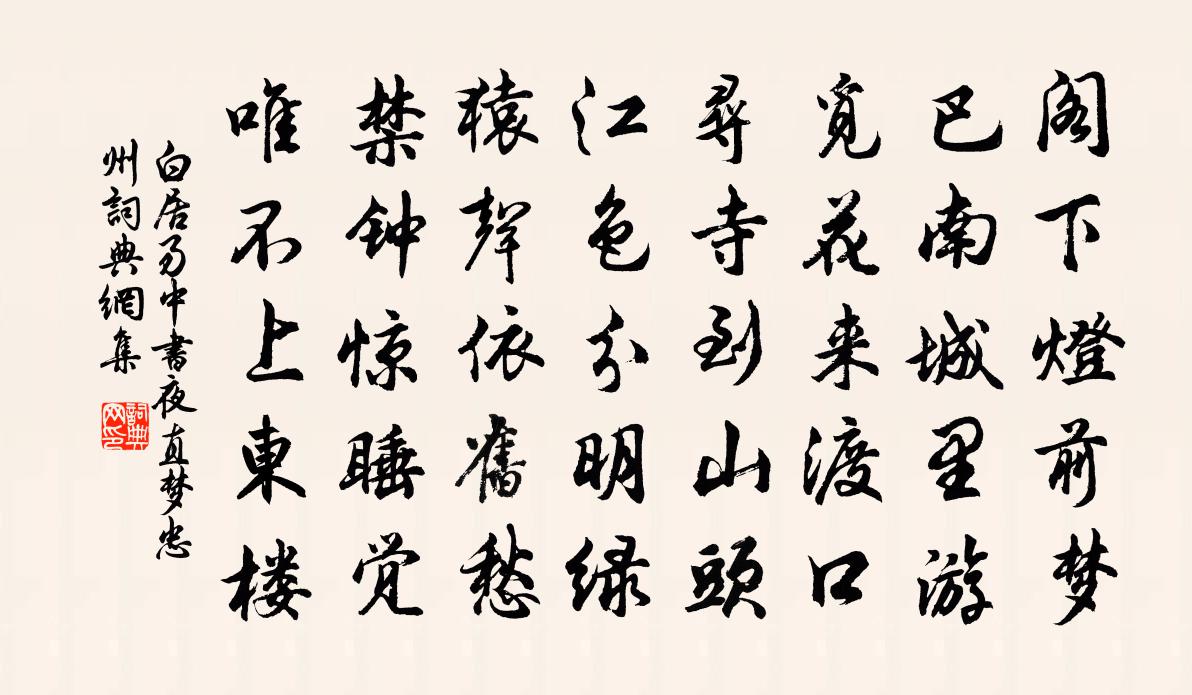 阁下燈前梦
巴南城里游
觅花来渡口
尋寺到山頭
江色分明绿
猿聲依舊愁
禁钟惊睡觉
唯不上東楼
白居易中書夜直梦忠
州詞典網集
詞典网印